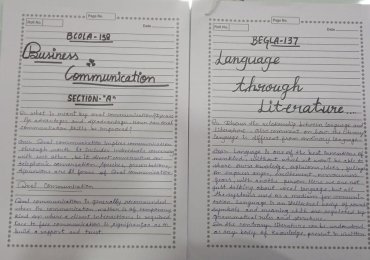 Page No.
Date
BCOLA-138
Business
Communication
SECTION-"A"
Q. What is meant by oral communication? Discuss
its advantages and disadvantages. How can oral
communication skills be improved?
Ans. Oral communication implies communication
through mouth. It includes individuals conversing
with each other, be it direct conversation or
telephonic conversation. Speeches, presentations,
discussions are all forms of oral communication.
Oral Communication
Oral communication is generally recommended
when the communication matter is of temporary
kind or where a direct interaction is required.
Face to face communication is significant so as to
build a rapport and trust.
Page No.
Date
BEGLA-137
Language
through
Literature.
Q. Discuss the relationship between language and
literature. Also comment on how the literary
language is different from ordinary language.
Ans. Language is one of the best innovations of
mankind, without which it wont be able to
share our knowledge, relationship, ideas, feelings
with another person. Here we are not
just talking about vocal language but all
Language is an
symbols and meaning
grammatical rules and structure.
In the contrary literature can be understood
as any body of knowledge present in written